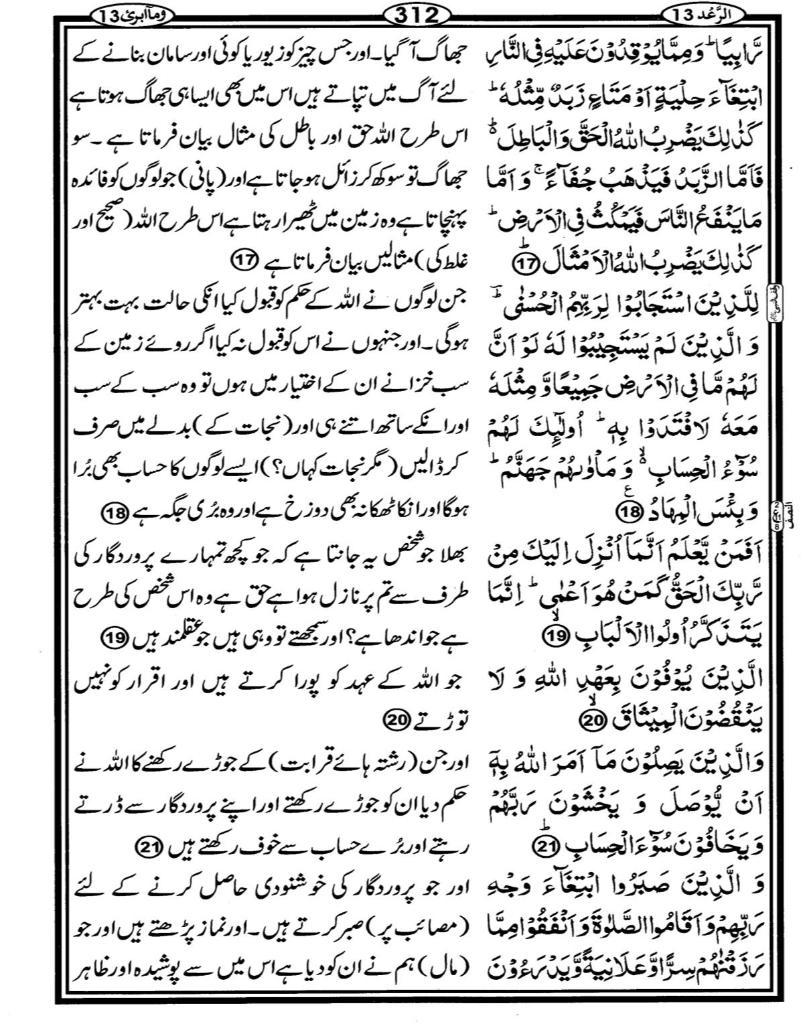 الرَّعْد 13
312
وَمَآ اُبَرِّئُ 13
رَّابِيًا ؕ وَمِمَّا يُوْقِدُوْنَ عَلَيْهِ فِى النَّارِ
ابْتِغَآءَ حِلْيَةٍ اَوْ مَتَاعٍ زَبَدٌ مِّثْلُهٗ ؕ
كَذٰلِكَ يَضْرِبُ اللّٰهُ الْحَقَّ وَالْبَاطِلَ ۬ؕ
فَاَمَّا الزَّبَدُ فَيَذْهَبُ جُفَآءً ۚ وَ اَمَّا
مَا يَنْفَعُ النَّاسَ فَيَمْكُثُ فِى الْاَرْضِ ؕ
كَذٰلِكَ يَضْرِبُ اللّٰهُ الْاَمْثَالَ ؕ 17
لِلَّذِيْنَ اسْتَجَابُوْا لِرَبِّهِمُ الْحُسْنٰى ؕ
وَ الَّذِيْنَ لَمْ يَسْتَجِيْبُوْا لَهٗ لَوْ اَنَّ
لَهُمْ مَّا فِى الْاَرْضِ جَمِيْعًا وَّ مِثْلَهٗ
مَعَهٗ لَافْتَدَوْا بِهٖ ؕ اُولٰٓئِكَ لَهُمْ
سُوْٓءُ الْحِسَابِ ۙ وَ مَاْوٰىهُمْ جَهَنَّمُ ؕ
وَ بِئْسَ الْمِهَادُ 18
اَفَمَنْ يَّعْلَمُ اَنَّمَاۤ اُنْزِلَ اِلَيْكَ مِنْ
رَّبِّكَ الْحَقُّ كَمَنْ هُوَ اَعْمٰى ؕ اِنَّمَا
يَتَذَكَّرُ اُولُوا الْاَلْبَابِ ۙ 19
الَّذِيْنَ يُوْفُوْنَ بِعَهْدِ اللّٰهِ وَ لَا
يَنْقُضُوْنَ الْمِيْثَاقَ ۙ 20
وَالَّذِيْنَ يَصِلُوْنَ مَاۤ اَمَرَ اللّٰهُ بِهٖۤ
اَنْ يُّوْصَلَ وَ يَخْشَوْنَ رَبَّهُمْ
وَيَخَافُوْنَ سُوْٓءَ الْحِسَابِ ؕ 21
وَ الَّذِيْنَ صَبَرُوا ابْتِغَآءَ وَجْهِ
رَبِّهِمْ وَاَقَامُوا الصَّلٰوةَ وَاَنْفَقُوْا مِمَّا
رَزَقْنٰهُمْ سِرًّا وَّعَلَانِيَةً وَّيَدْرَءُوْنَ
جھاگ آ گیا۔ اور جس چیز کو زیور یا کوئی اور سامان بنانے کے
لئے آگ میں تپاتے ہیں اس میں بھی ایسا ہی جھاگ ہوتا ہے
اس طرح اللہ حق اور باطل کی مثال بیان فرماتا ہے ۔ سو
جھاگ تو سوکھ کر زائل ہو جاتا ہے اور (پانی) جو لوگوں کو فائدہ
پہنچاتا ہے وہ زمین میں ٹھیرا رہتا ہے اس طرح اللہ (صحیح اور
غلط کی) مثالیں بیان فرماتا ہے 17
جن لوگوں نے اللہ کے حکم کو قبول کیا انکی حالت بہت بہتر
ہوگی۔ اور جنہوں نے اس کو قبول نہ کیا اگر روئے زمین کے
سب خزانے ان کے اختیار میں ہوں تو وہ سب کے سب
اور انکے ساتھ اتنے ہی اور (نجات کے) بدلے میں صرف
کر ڈالیں (مگر نجات کہاں؟) ایسے لوگوں کا حساب بھی بُرا
ہوگا اور انکا ٹھکانہ بھی دوزخ ہے اور وہ بُری جگہ ہے 18
بھلا جو شخص یہ جانتا ہے کہ جو کچھ تمہارے پروردگار کی
طرف سے تم پر نازل ہوا ہے حق ہے وہ اس شخص کی طرح
ہے جو اندھا ہے؟ اور سمجھتے تو وہی ہیں جو عقلمند ہیں 19
جو اللہ کے عہد کو پورا کرتے ہیں اور اقرار کو نہیں
توڑتے 20
اور جن (رشتہ ہائے قرابت) کے جوڑے رکھنے کا اللہ نے
حکم دیا ان کو جوڑے رکھتے اور اپنے پروردگار سے ڈرتے
رہتے اور بُرے حساب سے خوف رکھتے ہیں 21
اور جو پروردگار کی خوشنودی حاصل کرنے کے لئے
(مصائب پر) صبر کرتے ہیں۔ اور نماز پڑھتے ہیں اور جو
(مال) ہم نے ان کو دیا ہے اس میں سے پوشیدہ اور ظاہر
النصف